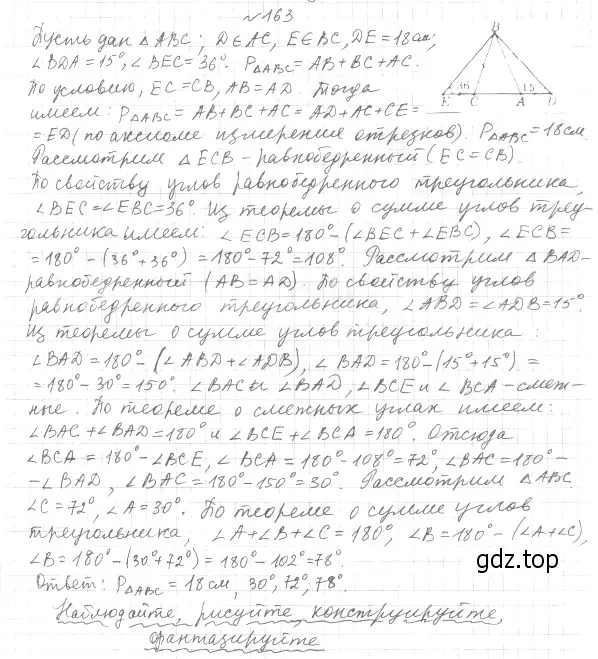 №163
Пусть дан △ABC; D∈AC, E∈BC, DE = 18 см;
∠BDA = 15°, ∠BEC = 36°. P△ABC = AB + BC + AC.
По условию, EC = CB, AB = AD. Тогда
имеем: P△ABC = AB + BC + AC = AD + AC + CE =
= ED (по аксиоме измерения отрезков). P△ABC = 18 см.
Рассмотрим △ECB - равнобедренный (EC = CB).
По свойству углов равнобедренного треугольника,
∠BEC = ∠EBC = 36°. Из теоремы о сумме углов треу-
гольника имеем: ∠ECB = 180° - (∠BEC + ∠EBC), ∠ECB =
= 180° - (36° + 36°) = 180° - 72° = 108°. Рассмотрим △BAD -
равнобедренный (AB = AD). По свойству углов
равнобедренного треугольника, ∠ABD = ∠ADB = 15°.
Из теоремы о сумме углов треугольника:
∠BAD = 180° - (∠ABD + ∠ADB), ∠BAD = 180° - (15° + 15°) =
= 180° - 30° = 150°. ∠BAC и ∠BAD, ∠BCE и ∠BCA - смеж-
ные. По теореме о смежных углах имеем:
∠BAC + ∠BAD = 180° и ∠BCE + ∠BCA = 180°. Отсюда
∠BCA = 180° - ∠BCE, ∠BCA = 180° - 108° = 72°, ∠BAC = 180° -
- ∠BAD, ∠BAC = 180° - 150° = 30°. Рассмотрим △ABC
∠C = 72°, ∠A = 30°. По теореме о сумме углов
треугольника, ∠A + ∠B + ∠C = 180°, ∠B = 180° - (∠A + ∠C),
∠B = 180° - (30° + 72°) = 180° - 102° = 78°.
Ответ: P△ABC = 18 см, 30°, 72°, 78°.
Наблюдайте, рисуйте, конструируйте,
фантазируйте
B
36 15
E C A D
gdz.top